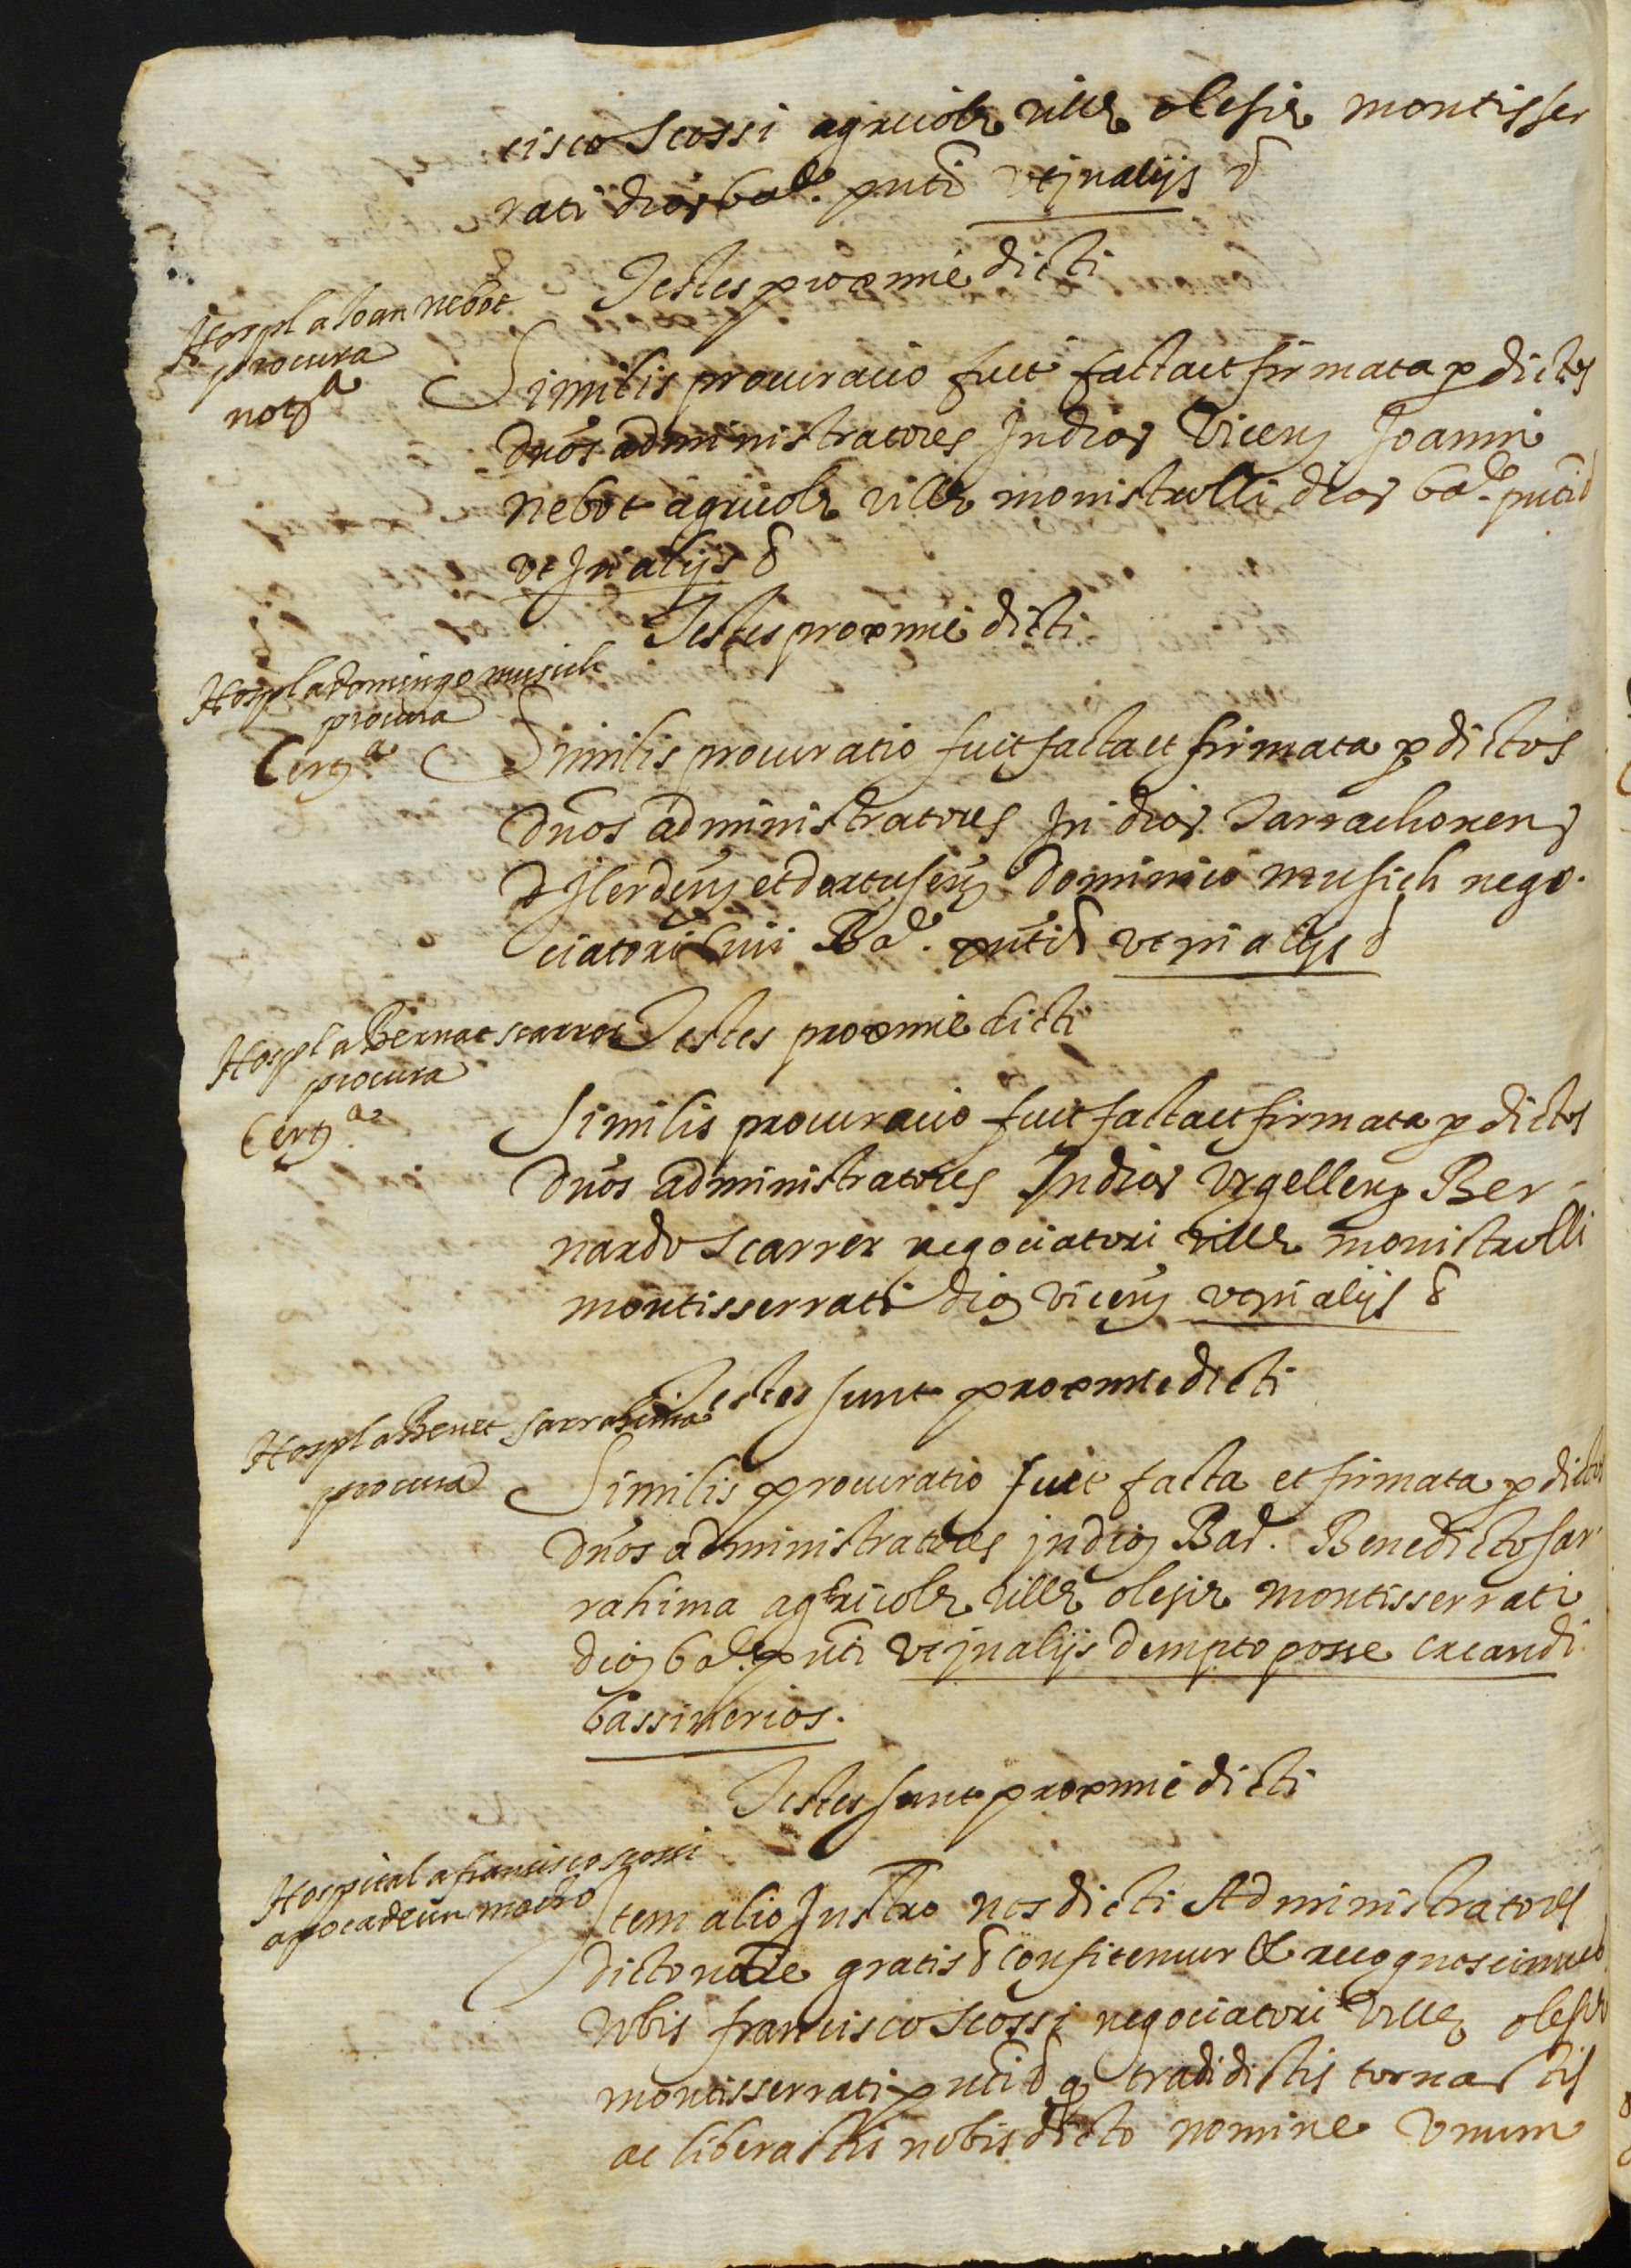 cisco Scossi agricole ville olesie montisser
rati dios bad. pnti ut in alijs &
Testes proxime dicti
Hospl a Joan nebot
procura
notᵃ
Similis procuracio fuit facta et firmata p dictos
dnos administratores In dios Vicen Joanni
nebot agricole ville monistrolli dios bad. pnti &
ut In alijs &
Testes proxime dicti
Hospl a domingo musich
procura
Certᵃ
Similis procuratio fuit facta et firmata p dictos
dnos administratores In dios Tarrachonen
& Ilerden et dertusen Dominico musich nego
ciatori civi Bad. pnti & ut in alijs &
Hospl a Bernat scarrer
procura
Certᵃ
Testes proxime dicti
Similis procuracio fuit facta et firmata p dictos
dnos administratores In dios Urgellen Ber-
nardo Scarrer negociatori ville monistrolli
montisserrati dio vicen ut in alijs &
Testes sunt proxime dicti
Hospl a Benet sarrahima
procura
Similis procuratio fuit facta et firmata p dictos
dnos administratores in dio Bad. Benedicto sar
rahima agricole ville olesie montisserrati
dio bad. pnti ut in alijs dempto posse creandi
bassinerios.
Testes sunt proxime dicti
Hospital a francisco scossi
apoca de un macho
Item alio Instro nos dicti Administratores
dicto noïe gratis & confitemur & recognoscimus
vobis francisco Scossi negociatori ville olesie
montisserrati pnti & q tradidistis tornastis
ac liberastis nobis dicto nomine Unum